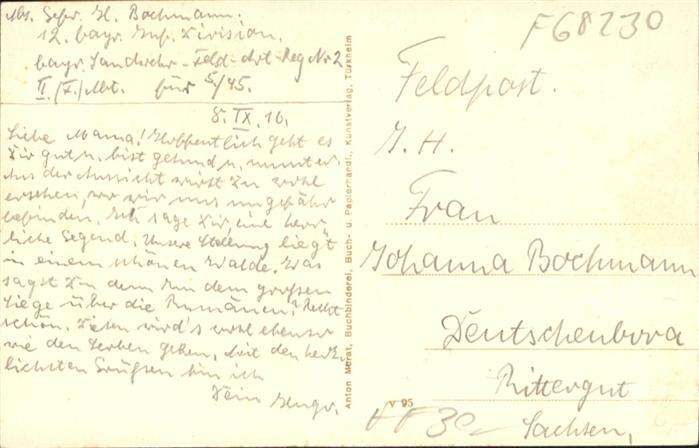 Abs. Gefr. H. Bochmann.
12. bayr. Inf. Division.
bayr. Landwehr-Feld-Art-Reg Nr 2
II/(F.) Abt. für 5/45.
8. IX. 16.
Liebe Mama! Hoffentlich geht es
Dir gut u. bist gesund u. munter
Aus der Aussicht wirst Du wohl
ersehen, wo wir uns ungefähr
befinden. Ich sage Dir, eine herr-
liche Gegend. Unsere Stellung liegt
in einem schönen Walde. Was
sagst Du denn zu dem großen
Siege über die Rumänen? Recht
schön. Diesen wird's wohl ebenso
wie den Serben gehen. Mit den herz-
lichsten Grüßen bin ich
Dein
Anton Marat, Buchbinderei, Buch- u. Papierhandl., Kunstverlag, Türkheim
F68230
Feldpost.
I. H.
Frau
Johanna Bochmann
Deutschenbora
Rittergut
Sachsen.
V 95